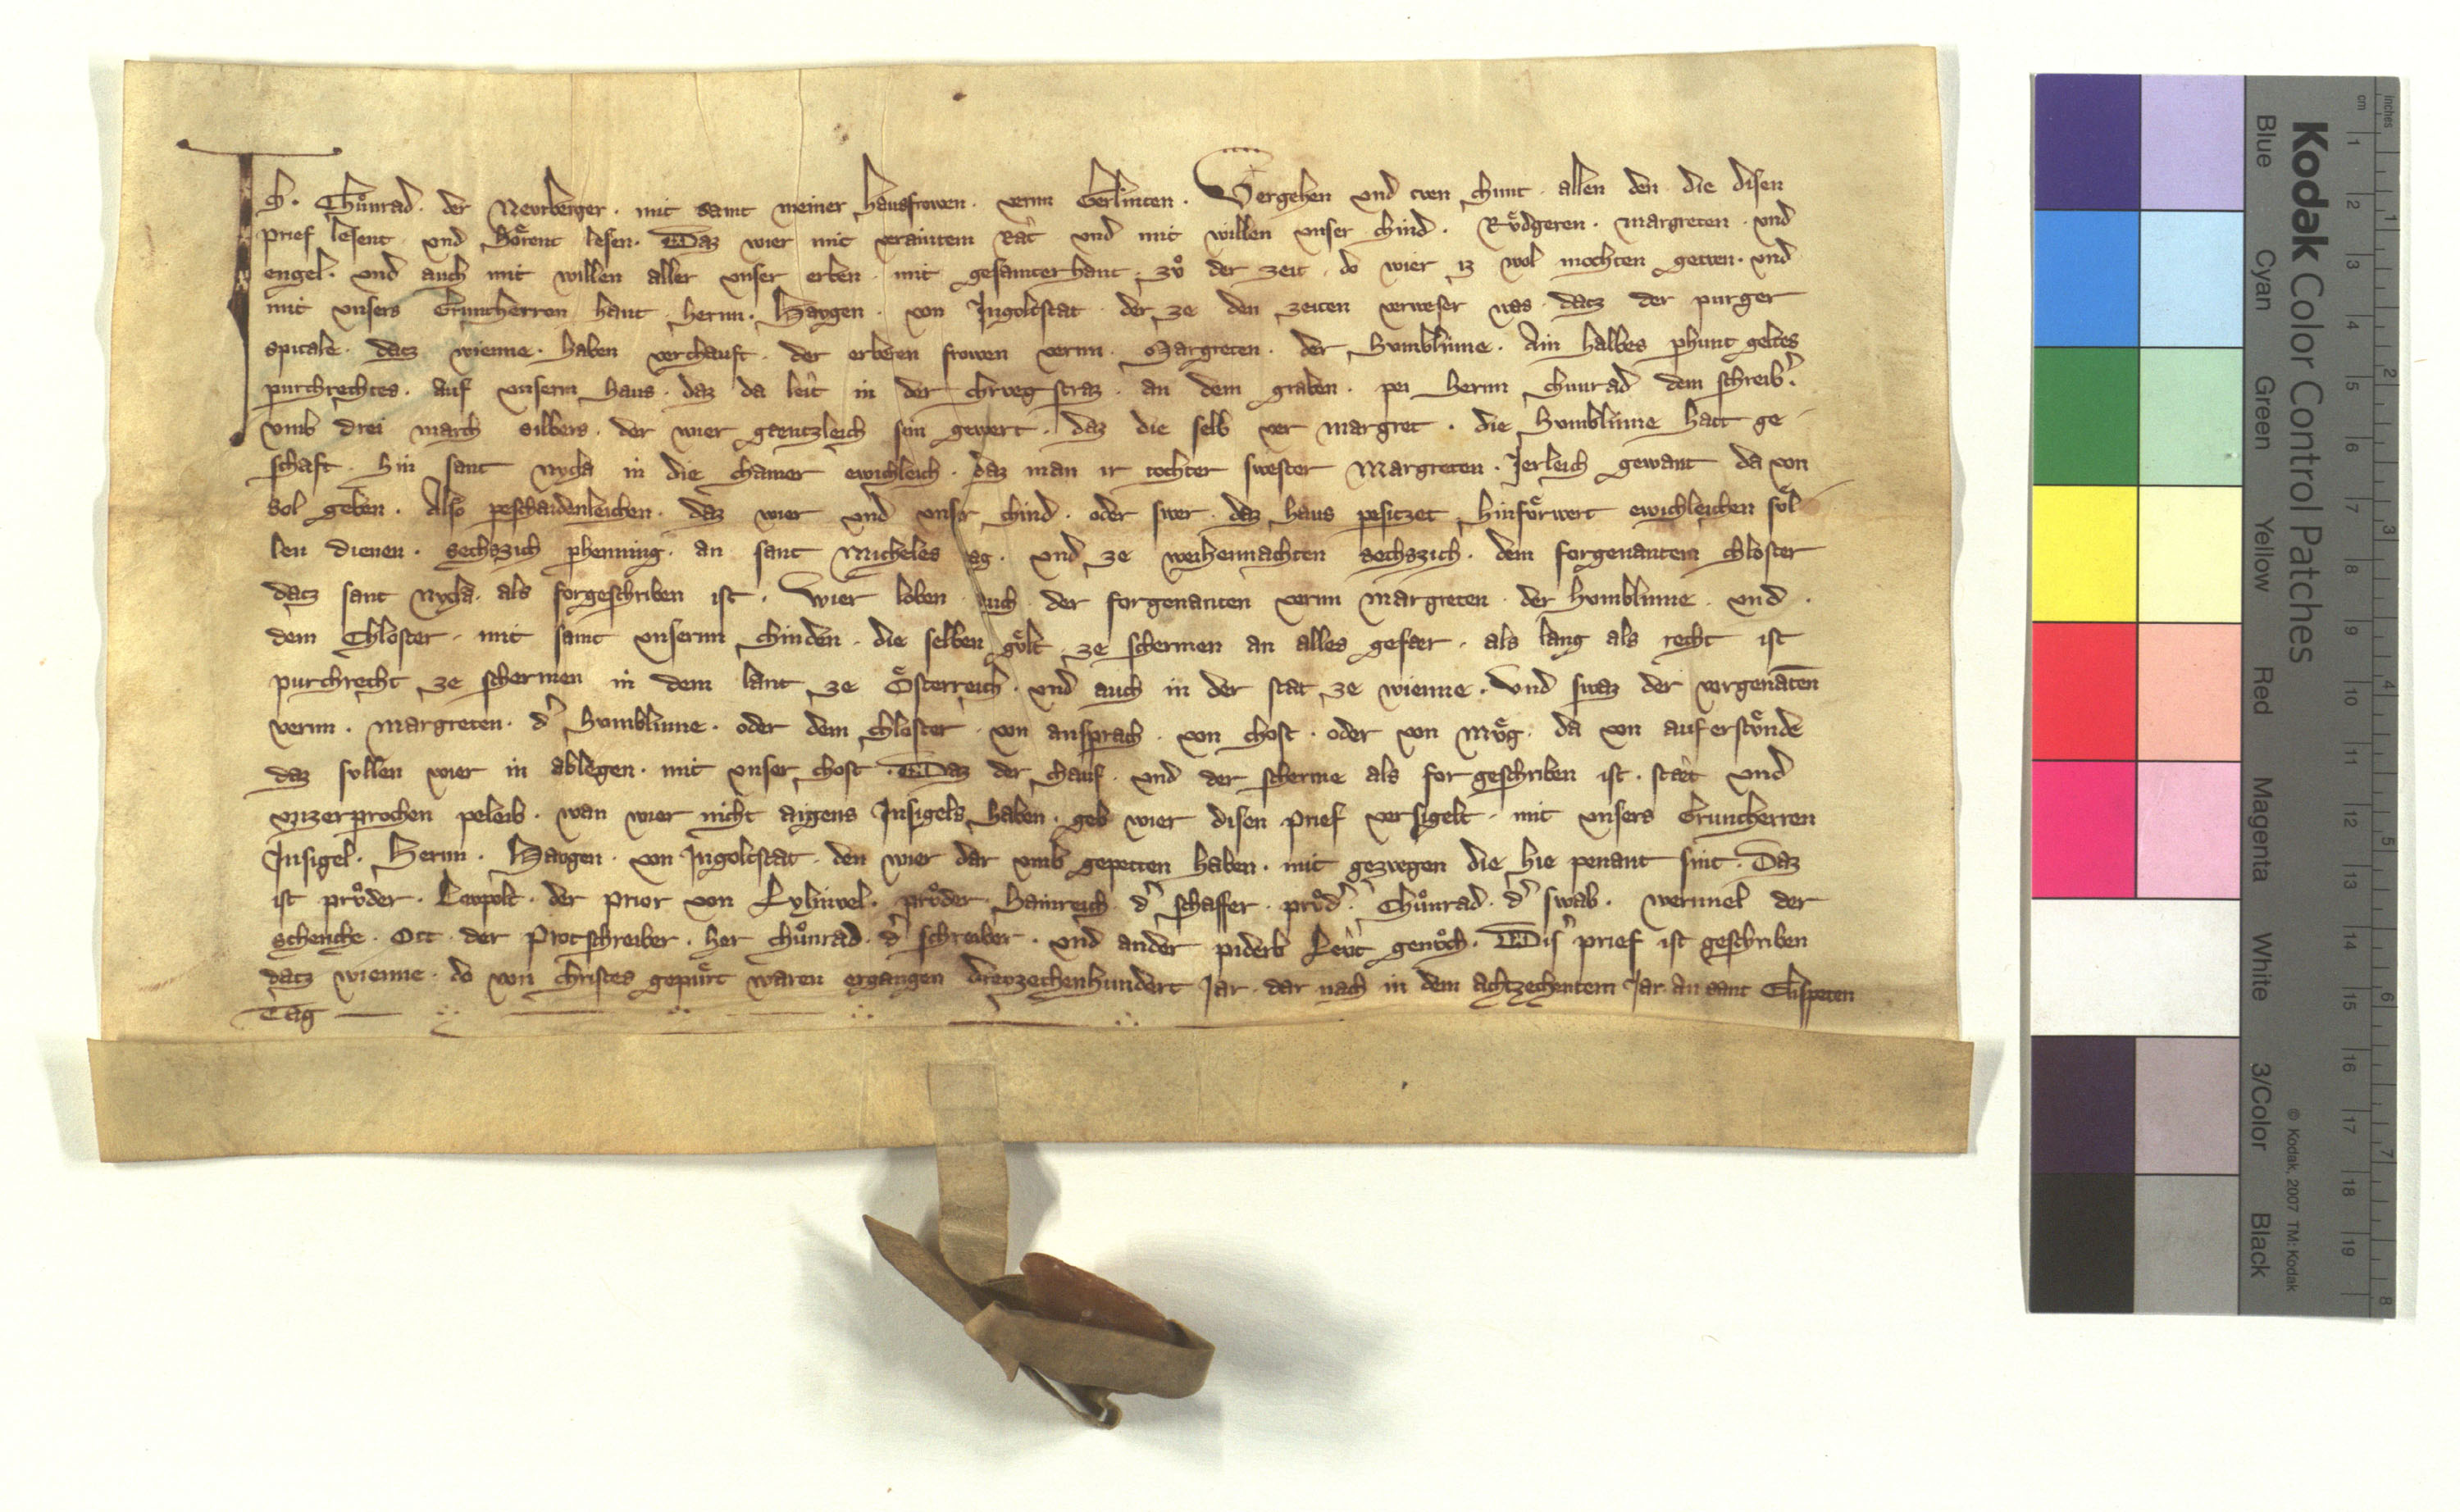 Ich. Chůnrad. der Nevrberger. mit samt meiner Hausfrowen. vernn Gerlinten. Vergehen vnd tven chunt. allen den. die disen
prief lesent. vnd hoͤrent lesen. Daz wier mit veraintem Rat vnd mit willen vnser chind. Ruͤdgeren. margreten. vnd
engel. vnd auch mit willen aller vnser erben. mit gesamterhant. zů der zeit. do wier iz wol mochten getven. vnd
mit vnsers Gruntherren hant. hernn. Haygen. von Jngoltstat. der ze den zeiten verweser was. datz der purger
spitale. datz wienne. haben verchauft. der erberen frowen vernn. Margreten. der Humblinne. Ain halbes phunt geltes
purchrechtes. auf vnserm haus. daz da leit in der chrvegstraz. an dem graben. pei hernn chunrad dem schreib̾.
vmb drei march silbers. der wier gaentzleich sein gewert. daz die selb ver margret. die Humblinne hatt ge-
schaft. hin sant nycla in die chamer ewichleich. daz man ir tochter swester Margreten. Jerleich gewant da von
sol geben. Also peschaidenleichen. daz wier vnd vnser chind. oder swer daz haus pesitzet hinfoͤrwert ewichleichen suͤl-
len dienen. sechszich phenning. an sant Micheles tag. vnd ze weihennachten sechszich. dem forgenantem chloster
datz sant nycla. als forgeschriben ist. Wier loben auch der forgenanten vernn margreten. der humblinne. vnd.
dem Chloster. mit samt vnsernn chinden. die selben guͤlt ze schermen an alles gefaer. als lang als recht ist
purchrecht ze schermen in dem lant ze Oͤsterreich. vnd auch in der stat ze wienne. Vnd swaz der vorgenātēn
vernn. margreten. d̾ Humblinne. oder dem chloster. von ansprach. von chost. oder von muͤg. da von auf erstuͤnde
daz svllen wier in ablegen. mit vnser chost. Daz der chauf. vnd der scherme als for geschriben ist. staet vnd
vnzerprochen peleib. wan wier nicht aigens Jnsigels haben. geb wier disen prief versigelt. mit vnsers Gruntherren
Jnsigel. Hernn. Haygen. von Jngoltstat. den wier dar vmb gepetten haben. mit gezvegen die hie penant sint. Daz
ist průder. Levpolt. der prior von Lylinvel. průder. Hainreich. d̾ schaffer. průd̾. Chůnrad. d̾ swab. wernnel der
schenche. Ott. der Protschreiber. her chůnrad. d̾ schreiber. vnd ander piderb Levt genůch. Dis̾ prief ist geschriben
datz wienne. do von christes gepuͤrt waren ergangen drevzechenhundert Jar. dar nach in dem achtzechentem Jar. an sant Elspeten
Tag
Kodak Color Control Patches
Blue Cyan Green Yellow Red Magenta White 3/Color Black
© Kodak, 2007 TM: Kodak
cm 1 2 3 4 5 6 7 8 9 10 11 12 13 14 15 16 17 18 19
inches 1 2 3 4 5 6 7 8